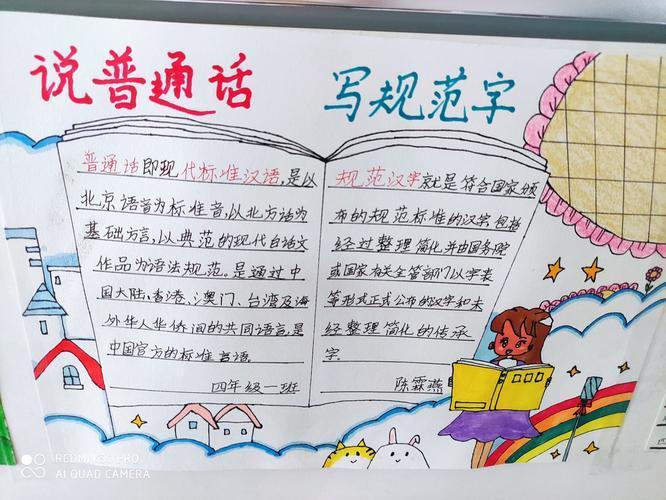 说普通话
写规范字
普通话即现代标准汉语,是以
北京语音为标准音,以北方话为
基础方言,以典范的现代白话文
作品为语法规范。是通过中
国大陆、香港、澳门、台湾及海
外华人华侨间的共同语言,是
中国官方的标准言语。
四年级一班
规范汉字就是符合国家颁
布的规范标准的汉字,包括
经过整理简化并由国务院
或国家有关全管部门以字表
等形式正式公布的汉字和未
经整理简化的传承
字.
陈霖燕
REDMI PRO
AI QUAD CAMERA